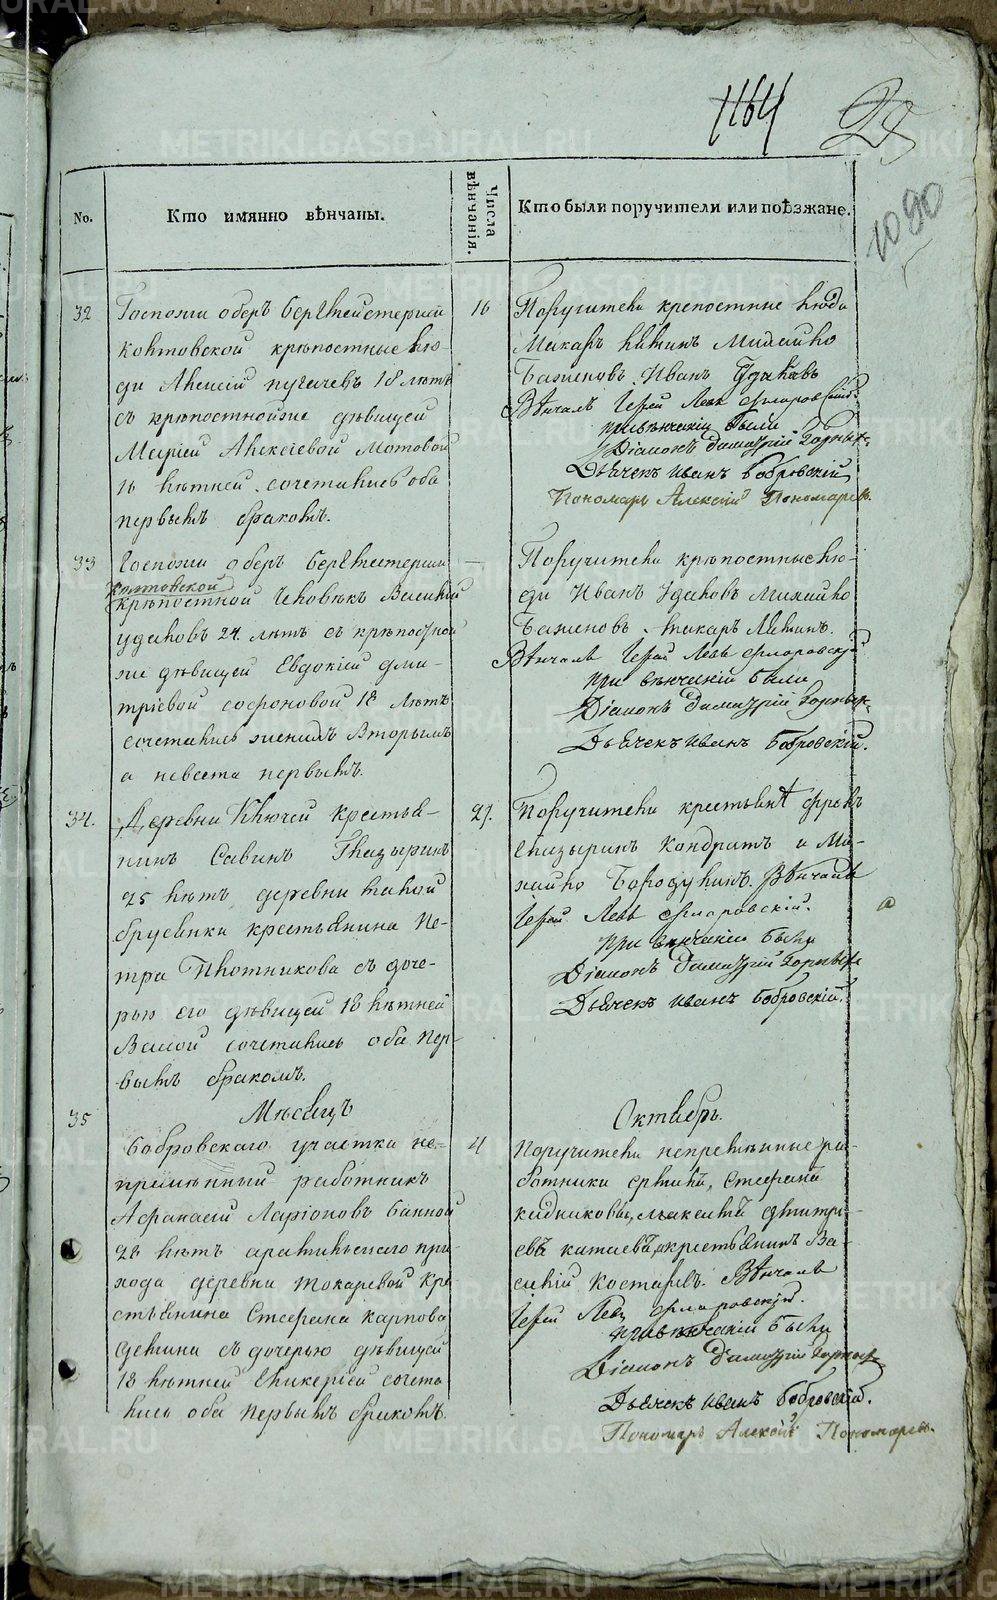 1164
25
1090
No.
Кто имянно вѣнчаны.
Числа вѣнчанія.
Кто были поручители или поѣзжане.
32
Госпожи оберъ бергмейстерши
колтовской крѣпостные лю-
ди Алексій пугачевъ 18 лѣтъ
съ крѣпостной же дѣвицей
Маріей Алексіевой Мотовой
16 лѣтней сочетались оба
первымъ бракомъ.
16
Поручители крепостные люди
Макаръ Михайло
Баженовъ Иванъ Удаловъ
Вѣнчалъ Іерей Левъ Флоровскій.
при вѣнчаніи были
Діаконъ Димитрій
Дьячекъ Иванъ Бобровскій
Пономарь Алексій Пономаревъ.
33
Госпожи оберъ бергмейстерши
колтовской
крѣпостной человѣкъ Василий
удаловъ 24 лѣтъ съ крѣпостной
же дѣвицей Евдокіей дми-
тріевой софроновой 18 лѣтъ
сочетались женихъ вторымъ
а невеста первымъ.
—
Поручители крѣпостные лю-
ди Иванъ Удаловъ Михайло
Баженовъ Макаръ
Вѣнчалъ Іерей Левъ Флоровскій
при вѣнчаніи были
Діаконъ Димитрій
Дьячекъ Иванъ Бобровскій.
34.
Деревни Ключей крестья-
нинъ Савинъ Глазыринъ
25 лѣтъ деревни
брусянки крестьянина Пе-
тра Плотникова съ доче-
рью его дѣвицей 18 лѣтней
сочетались оба пер-
вымъ бракомъ.
27.
Поручители крестьянѣ
Глазыринъ Кондратъ и Ми-
хайло Бородулинъ. Вѣнчалъ
Іерей Левъ Флоровскій.
при вѣнчаніи были
Діаконъ Димитрій
Дьячекъ Иванъ Бобровскій.
Мѣсяцъ
Октябрь.
35
бобровскаго участка не-
премѣнный работникъ
Афанасій Ларіоновъ банной
28 лѣтъ арамильскаго при-
хода деревни токаревой кре
стьянина Стефана карпова
детина съ дочерью дѣвицей
18 лѣтней Гликеріей сочета
лись оба первымъ бракомъ.
4
Поручители непремѣнные ра-
ботники Стефанъ
кадниковы, максимъ дмитри-
евъ китаевъ, крестьянинъ Ва-
силій костаревъ. Вѣнчалъ
Іерей Левъ Флоровскій.
при вѣнчаніи были
Діаконъ Димитрій
Дьячекъ Иванъ Бобровскій.
Пономарь Алексій Пономаревъ.
METRIKI.GASO-URAL.RU